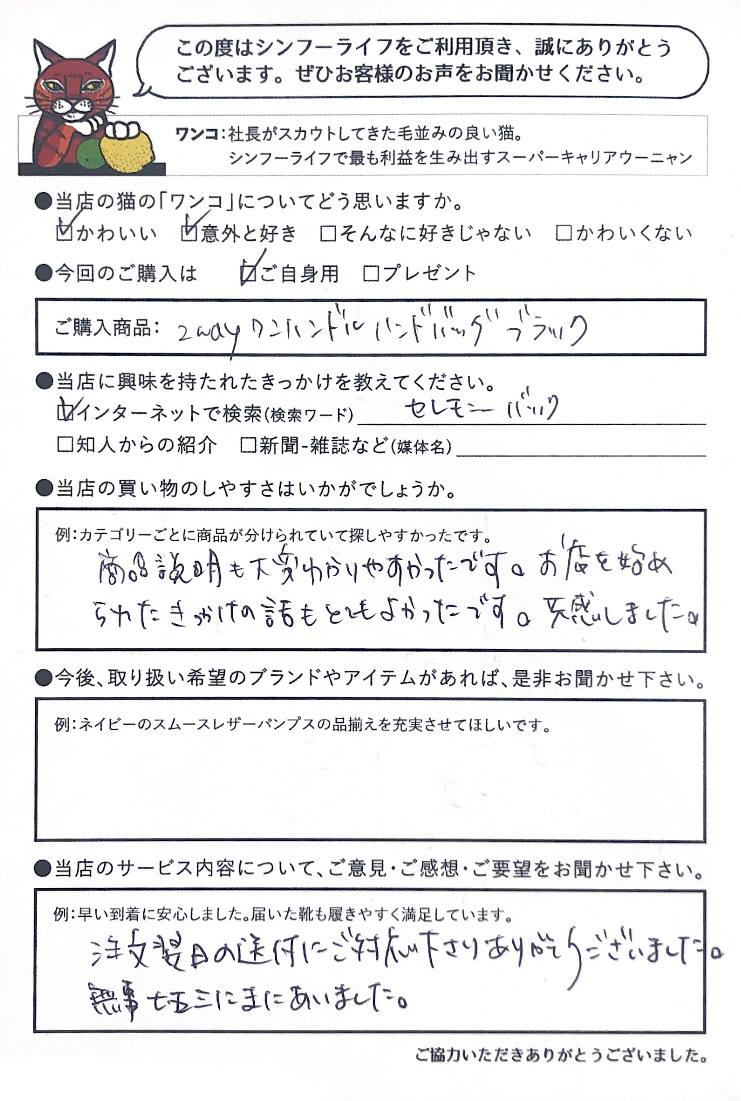 この度はシンフーライフをご利用頂き、誠にありがとう
ございます。ぜひお客様のお声をお聞かせください。
ワンコ:社長がスカウトしてきた毛並みの良い猫。
シンフーライフで最も利益を生み出すスーパーキャリアウーニャン
●当店の猫の「ワンコ」についてどう思いますか。
☑かわいい ☑意外と好き □そんなに好きじゃない □かわいくない
●今回のご購入は ☑ご自身用 □プレゼント
ご購入商品: 2way ワンハンドル ハンドバッグ ブラック
●当店に興味を持たれたきっかけを教えてください。
☑インターネットで検索(検索ワード) セレモニー バック
□知人からの紹介 □新聞-雑誌など(媒体名)
●当店の買い物のしやすさはいかがでしょうか。
例:カテゴリーごとに商品が分けられていて探しやすかったです。
商品説明も大変わかりやすかったです。お店を始め
られたきっかけの話もとてもよかったです。共感しました。
●今後、取り扱い希望のブランドやアイテムがあれば、是非お聞かせ下さい。
例:ネイビーのスムースレザーパンプスの品揃えを充実させてほしいです。
●当店のサービス内容について、ご意見・ご感想・ご要望をお聞かせ下さい。
例:早い到着に安心しました。届いた靴も履きやすく満足しています。
注文翌日の送付にご対応下さりありがとうございました。
無事七五三にまにあいました。
ご協力いただきありがとうございました。